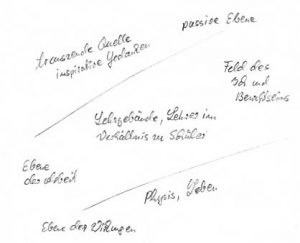 passive Ebene
transzende Quelle
inspirative Gedanken
Feld des
Ich und
Bewußtseins
Lehrgebäude, Lehrer im
Verhältnis zu Schüler
Ebene
der Arbeit
Physis, Leben
Ebene der Wirkungen